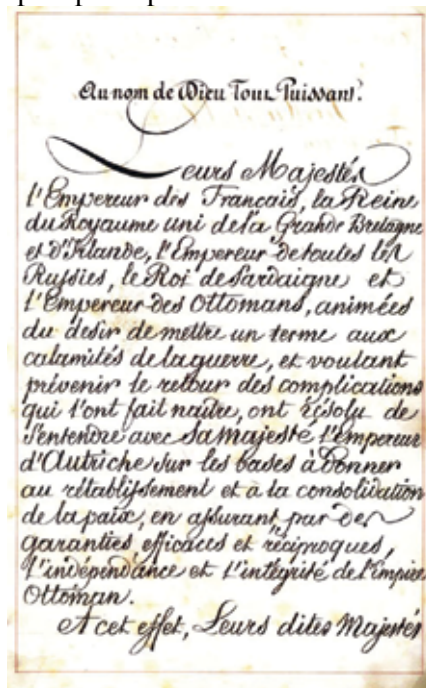 Au nom de Dieu Tout Puissant.
Leurs Majestés
l'Empereur des Français, la Reine
du Royaume uni de la Grande Bretagne
et d'Irlande, l'Empereur de toutes les
Russies, le Roi de Sardaigne et
l'Empereur des Ottomans, animées
du desir de mettre un terme aux
calamités de la guerre, et voulant
prévenir le retour des complications
qui l'ont fait naître, ont résolu de
s'entendre avec Sa Majesté l'Empereur
d'Autriche sur les bases à donner
au rétablissement et a la consolidation
de la paix, en assurant, par des
garanties efficaces et réciproques,
l'indépendance et l'intégrité de l'Empire
Ottoman.
A cet effet, Leurs dites Majestés